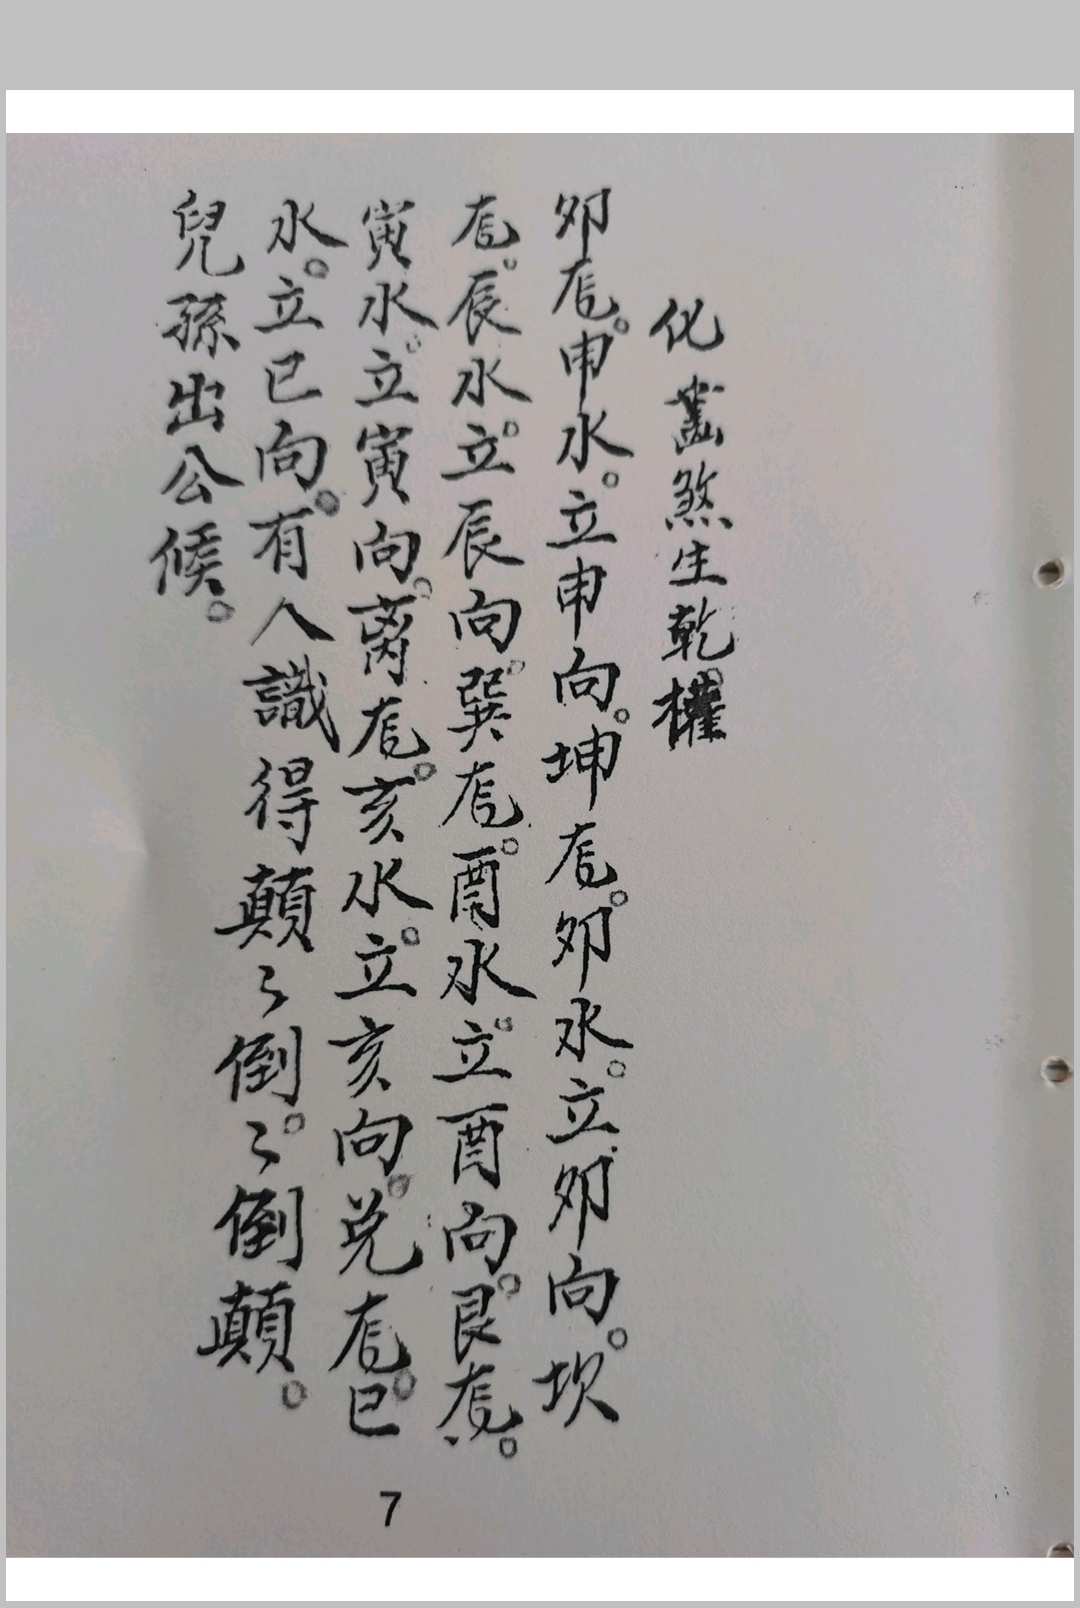 化煞生乾。權
夘龙。申水。立申向。坤龙。夘水。立夘向。坎
龙。辰水。立辰向。巽龙。酉水。立酉向。艮龙。
寅水。立寅向。离龙。亥水。立亥向。兑龙。巳
水。立巳向。有人識得顛〻倒。〻倒顛。
兒孫出公候。
7